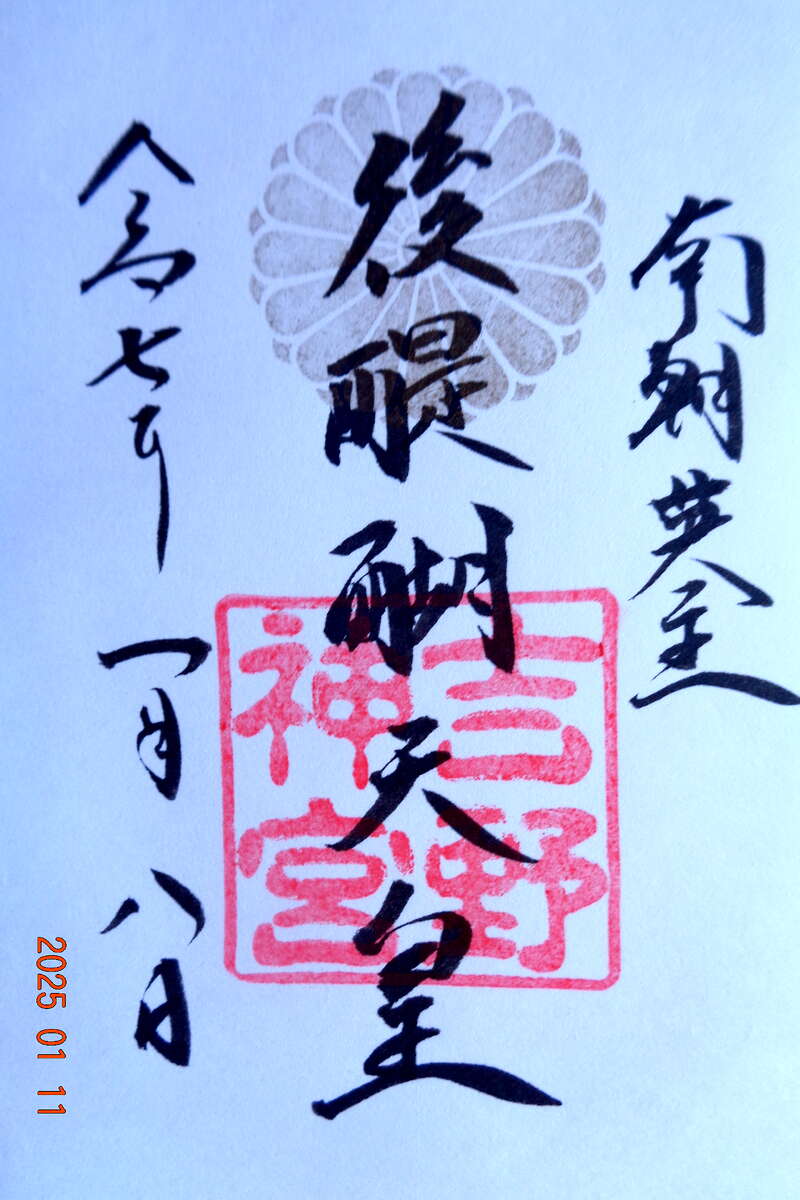 南朝英主
後醍醐天皇
吉野
神宮
令和七年
一月
八日
2025 01 11